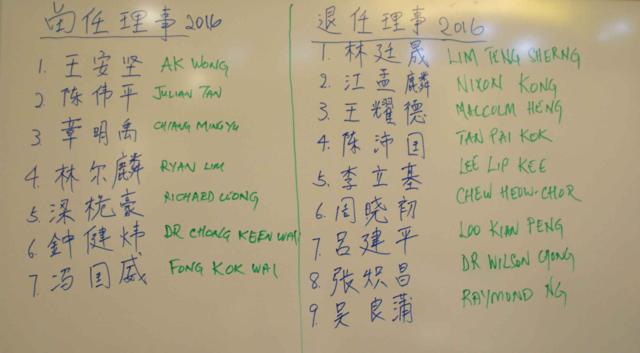 当任理事 2016
1. 王安坚 AK WONG
2. 陈伟平 JULIAN TAN
3. 章明禹 CHIANG MING YU
4. 林尔麟 RYAN LIM
5. 梁桄豪 RICHARD LEONG
6. 鈡健炜 DR CHONG KEEN WAI
7. 冯国威 FONG KOK WAI
退任理事 2016
1. 林廷晟 LIM TENG SHERNG
2. 江孟麟 NIXON KONG
3. 王耀德 MALCOLM HENG
4. 陈沛国 TAN PAI KOK
5. 李立基 LEE LIP KEE
6. 周晓初 CHEW HEOW-CHOR
7. 吕建平 LOO KIAN PENG
8. 张炽昌 DR WILSON CHONG
9. 吴良蒲 RAYMOND NG